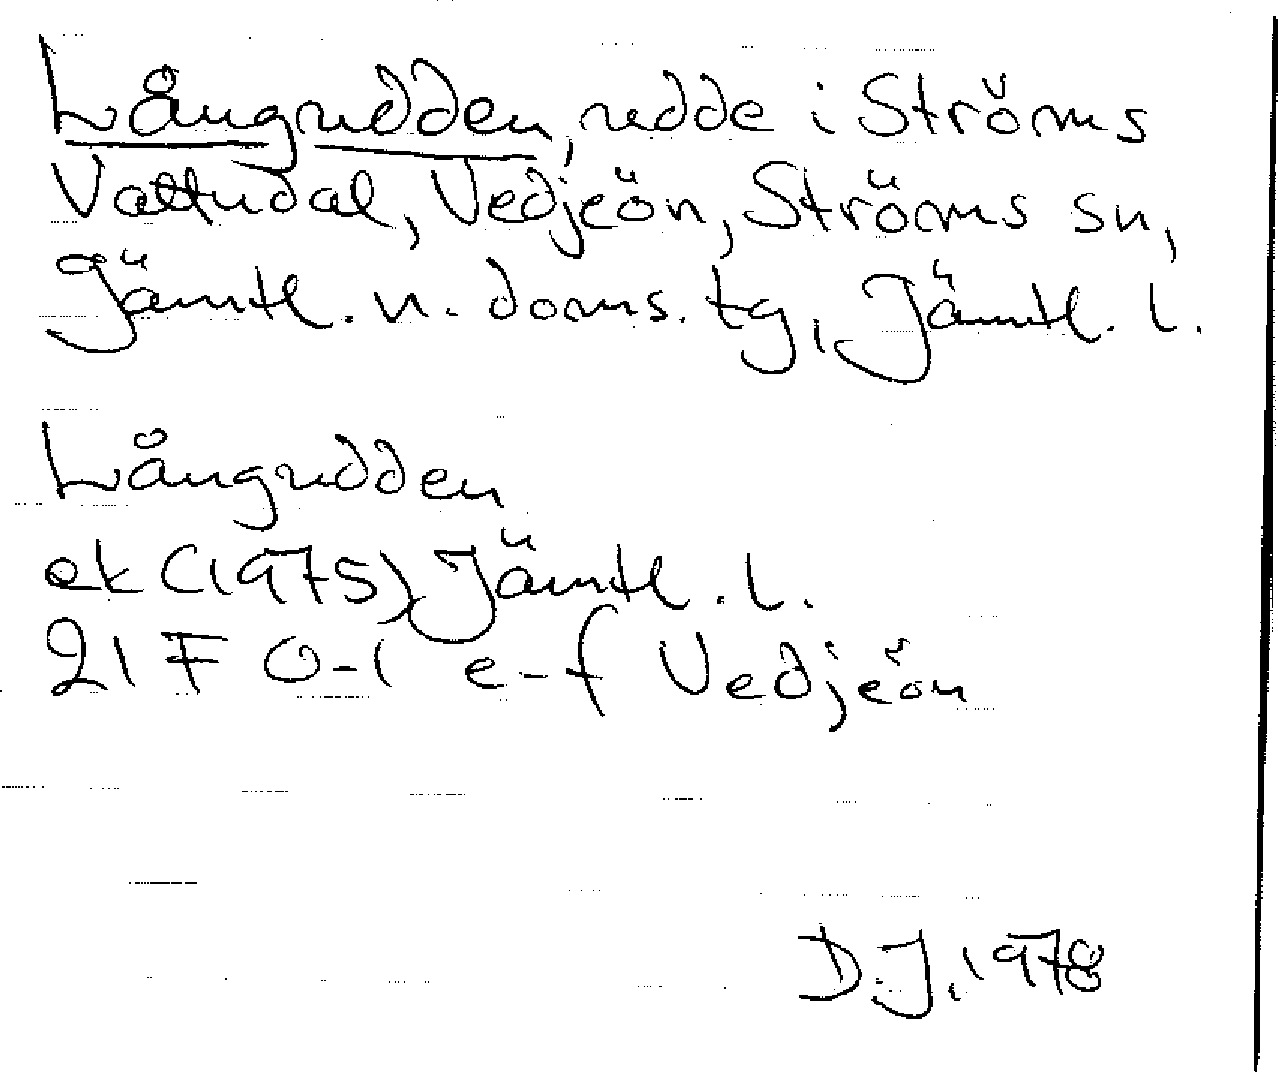 Långrudden, udde i Ströms
Vattudal, Vedjeön, Ströms sn,
Jämtl. n. doms. tg, Jämtl. l.
Långrudden
ek (1975) Jämtl. l.
21 F 0-1 e-f Vedjeön
D.J. 1978